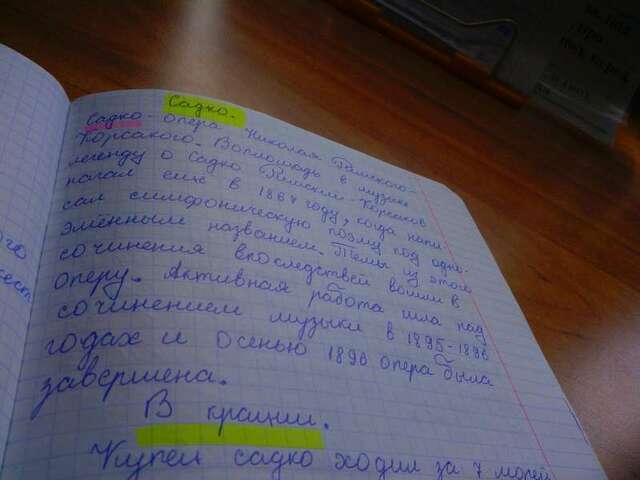 Садко.
Садко - опера Николая Римского-
Корсакого. Воплощадь в музыке
легенду о Садко Римский-Корсаков
начал ещё в 1867 году, когда напи-
сал симфоническую поэму под одно-
эменным названием. Темы из этого
сочинения впоследствеи вошли в
оперу. Активная работа шла над
сочинением музыки в 1895-1896
годах и осенью 1896 опера была
завершена.
В крации.
Купец садко ходил за 7 морей